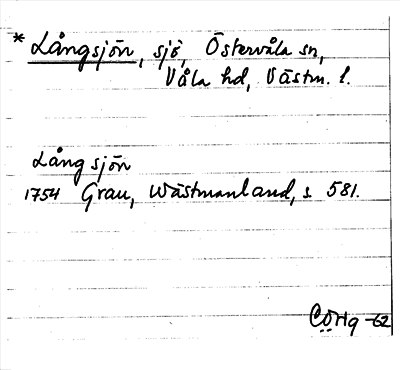 * Långsjön, sjö, Östervåla sn,
Våla hd, Västm. l.
Långsjön
1754 Grau, Wästmanland, s. 581.
CÖHg -62